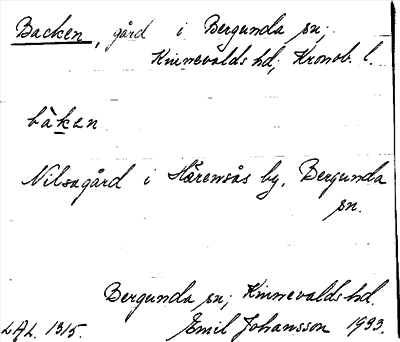 Backen, gård i Bergunda sn;
Kinnevalds hd, Kronob. l.
bàken
Nilsagård i Härensås by, Bergunda
sn.
Bergunda sn; Kinnevalds hd.
LAL. 1315. Emil Johansson 1933.